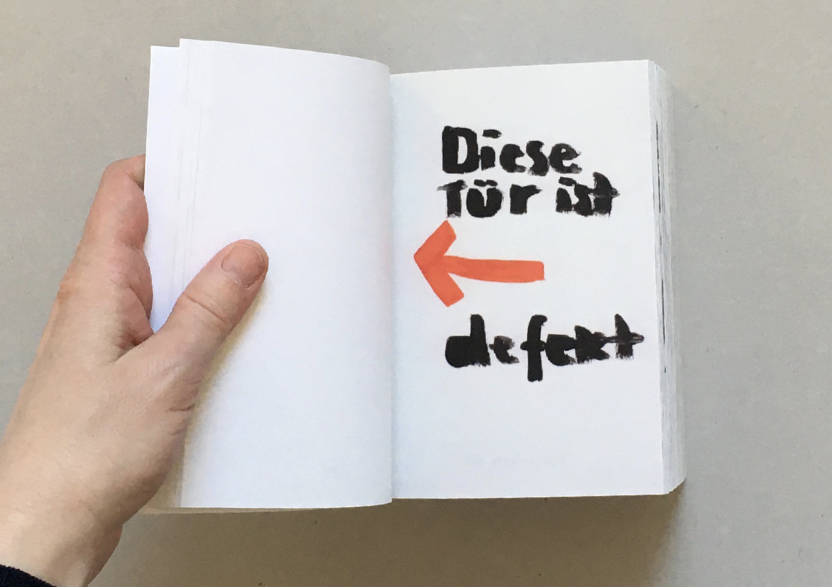 Diese
Tür ist
defekt